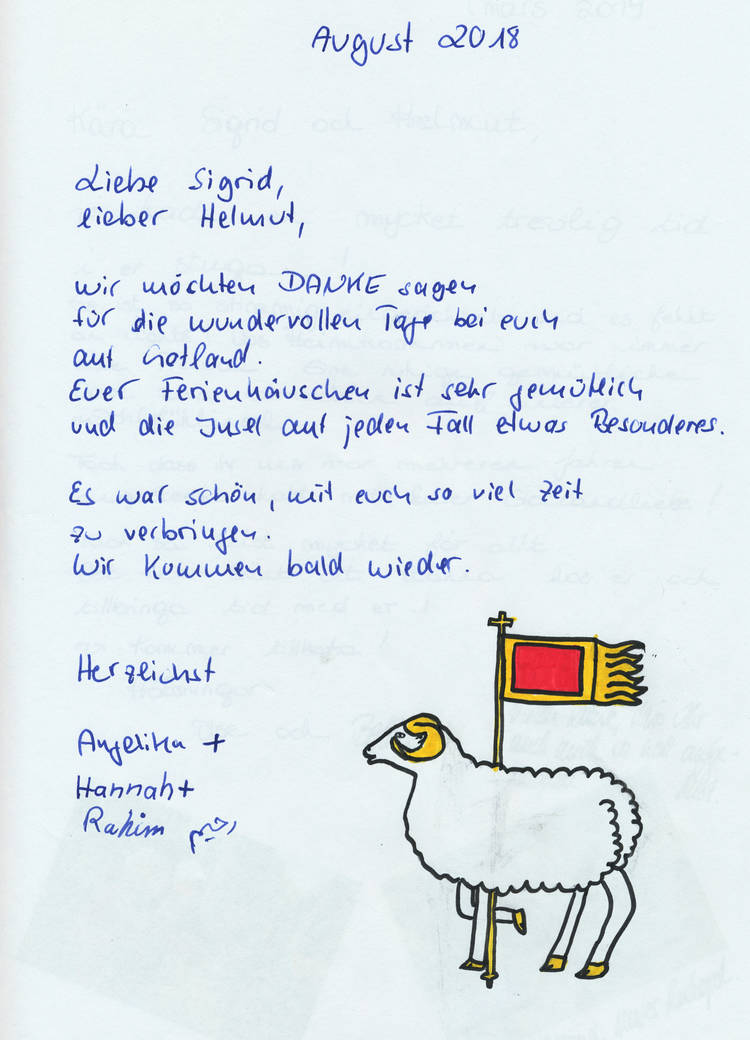 August 2018
Liebe Sigrid,
lieber Helmut,
wir möchten DANKE sagen
für die wundervollen Tage bei euch
auf Gotland.
Euer Ferienhäuschen ist sehr gemütlich
und die Insel auf jeden Fall etwas Besonderes.
Es war schön, mit euch so viel Zeit
zu verbringen.
Wir kommen bald wieder.
Herzlichst
Angelika +
Hannah +
Rahim رحیم